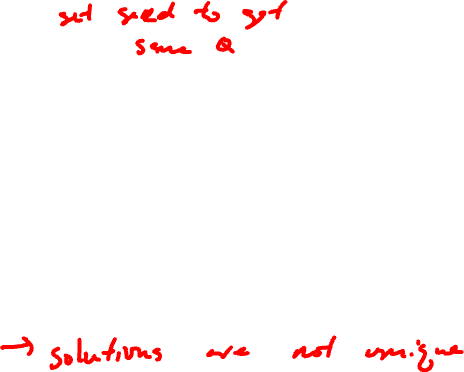 set seed to get
same Q
→ solutions are not unique